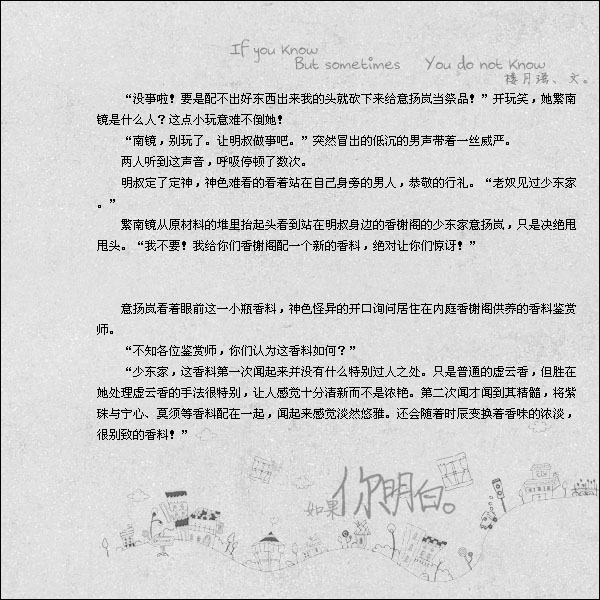 If you know
But sometimes You do not know
楼月瑶、文。
“没事啦！要是配不出好东西出来我的头就砍下来给意扬岚当祭品！”开玩笑，她繁南
镜是什么人？这点小玩意难不倒她！
“南镜，别玩了。让明叔做事吧。”突然冒出的低沉的男声带着一丝威严。
两人听到这声音，呼吸停顿了数次。
明叔定了定神，神色难看的看着站在自己身旁的男人，恭敬的行礼。“老奴见过少东家
。”
繁南镜从原材料的堆里抬起头看到站在明叔身边的香榭阁的少东家意扬岚，只是决绝甩
甩头。“我不要！我给你们香榭阁配一个新的香料，绝对让你们惊讶！”
意扬岚看着眼前这一小瓶香料，神色怪异的开口询问居住在内庭香榭阁供养的香料鉴赏
师。
“不知各位鉴赏师，你们认为这香料如何？”
“少东家，这香料第一次闻起来并没有什么特别过人之处。只是普通的虚云香，但胜在
她处理虚云香的手法很特别，让人感觉十分清新而不是浓艳。第二次闻才闻到其精髓，将紫
珠与宁心、莫须等香料配在一起，闻起来感觉淡然悠雅。还会随着时辰变换着香味的浓淡，
很别致的香料！”
如果你明白。